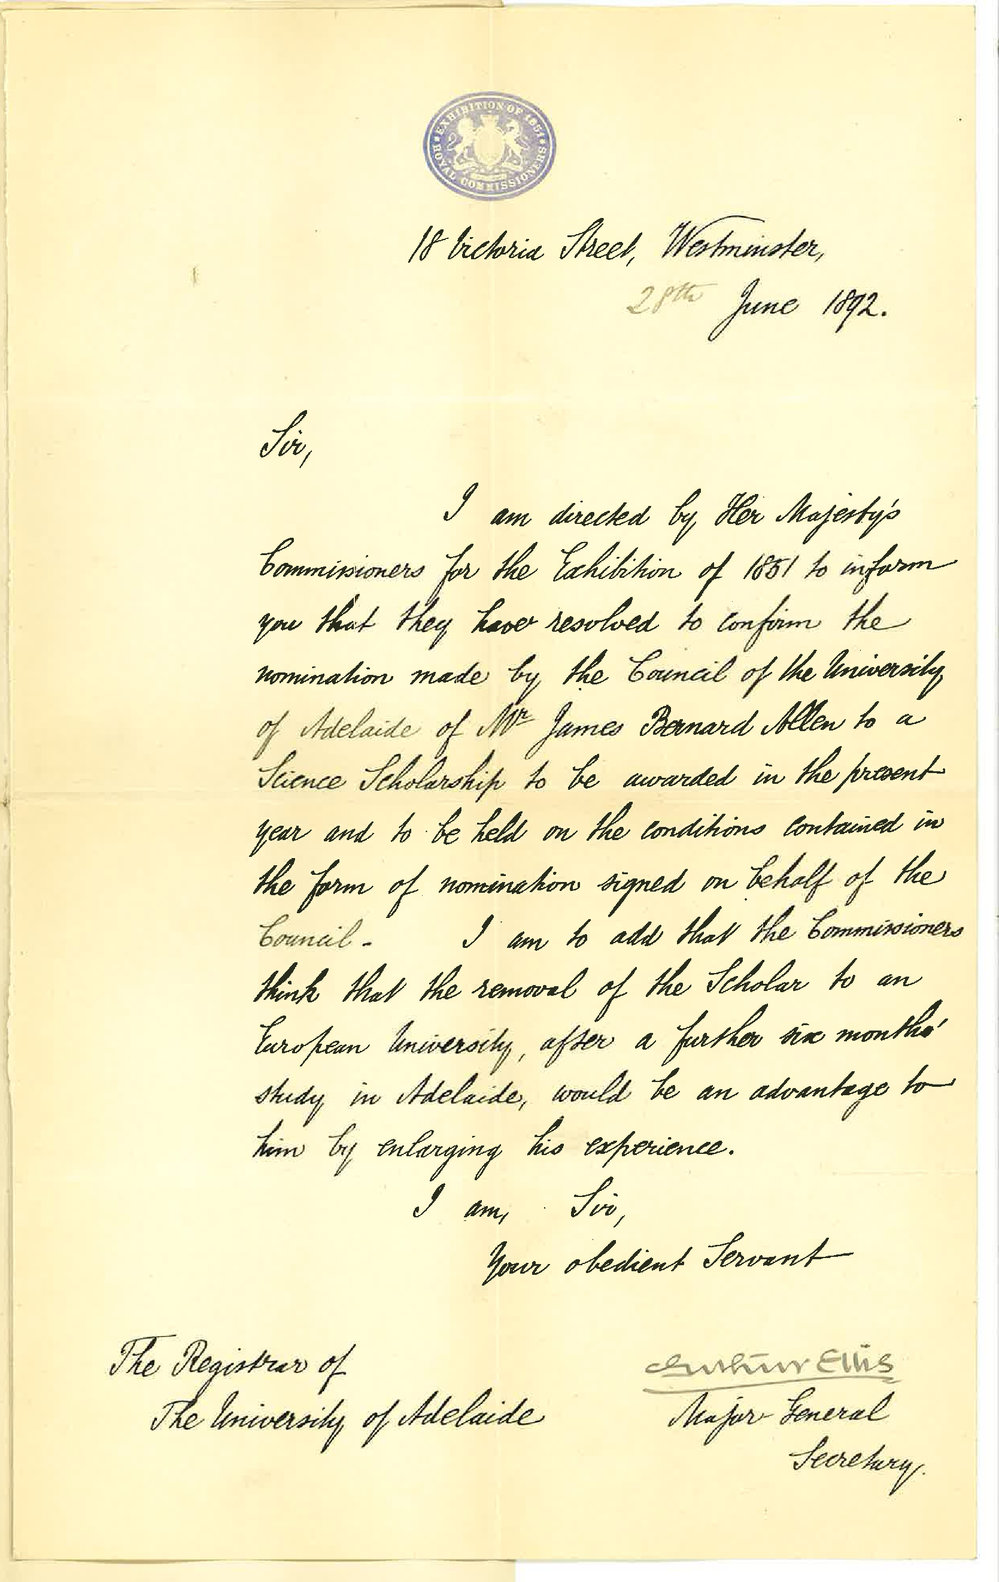 EXHIBITION OF 1851
ROYAL COMMISSIONERS
18 Victoria Street, Westminster,
28th June 1892.
Sir,
I am directed by Her Majesty's
Commissioners for the Exhibition of 1851 to inform
you that they have resolved to confirm the
nomination made by the Council of the University
of Adelaide of Mr James Bernard Allen to a
Science Scholarship to be awarded in the present
year and to be held on the conditions contained in
the form of nomination signed on behalf of the
Council - I am to add that the Commissioners
think that the removal of the Scholar to an
European University, after a further six months'
study in Adelaide, would be an advantage to
him by enlarging his experience.
I am, Sir,
Your obedient Servant
The Registrar of
The University of Adelaide
Arthur Ellis
Major General
Secretary.